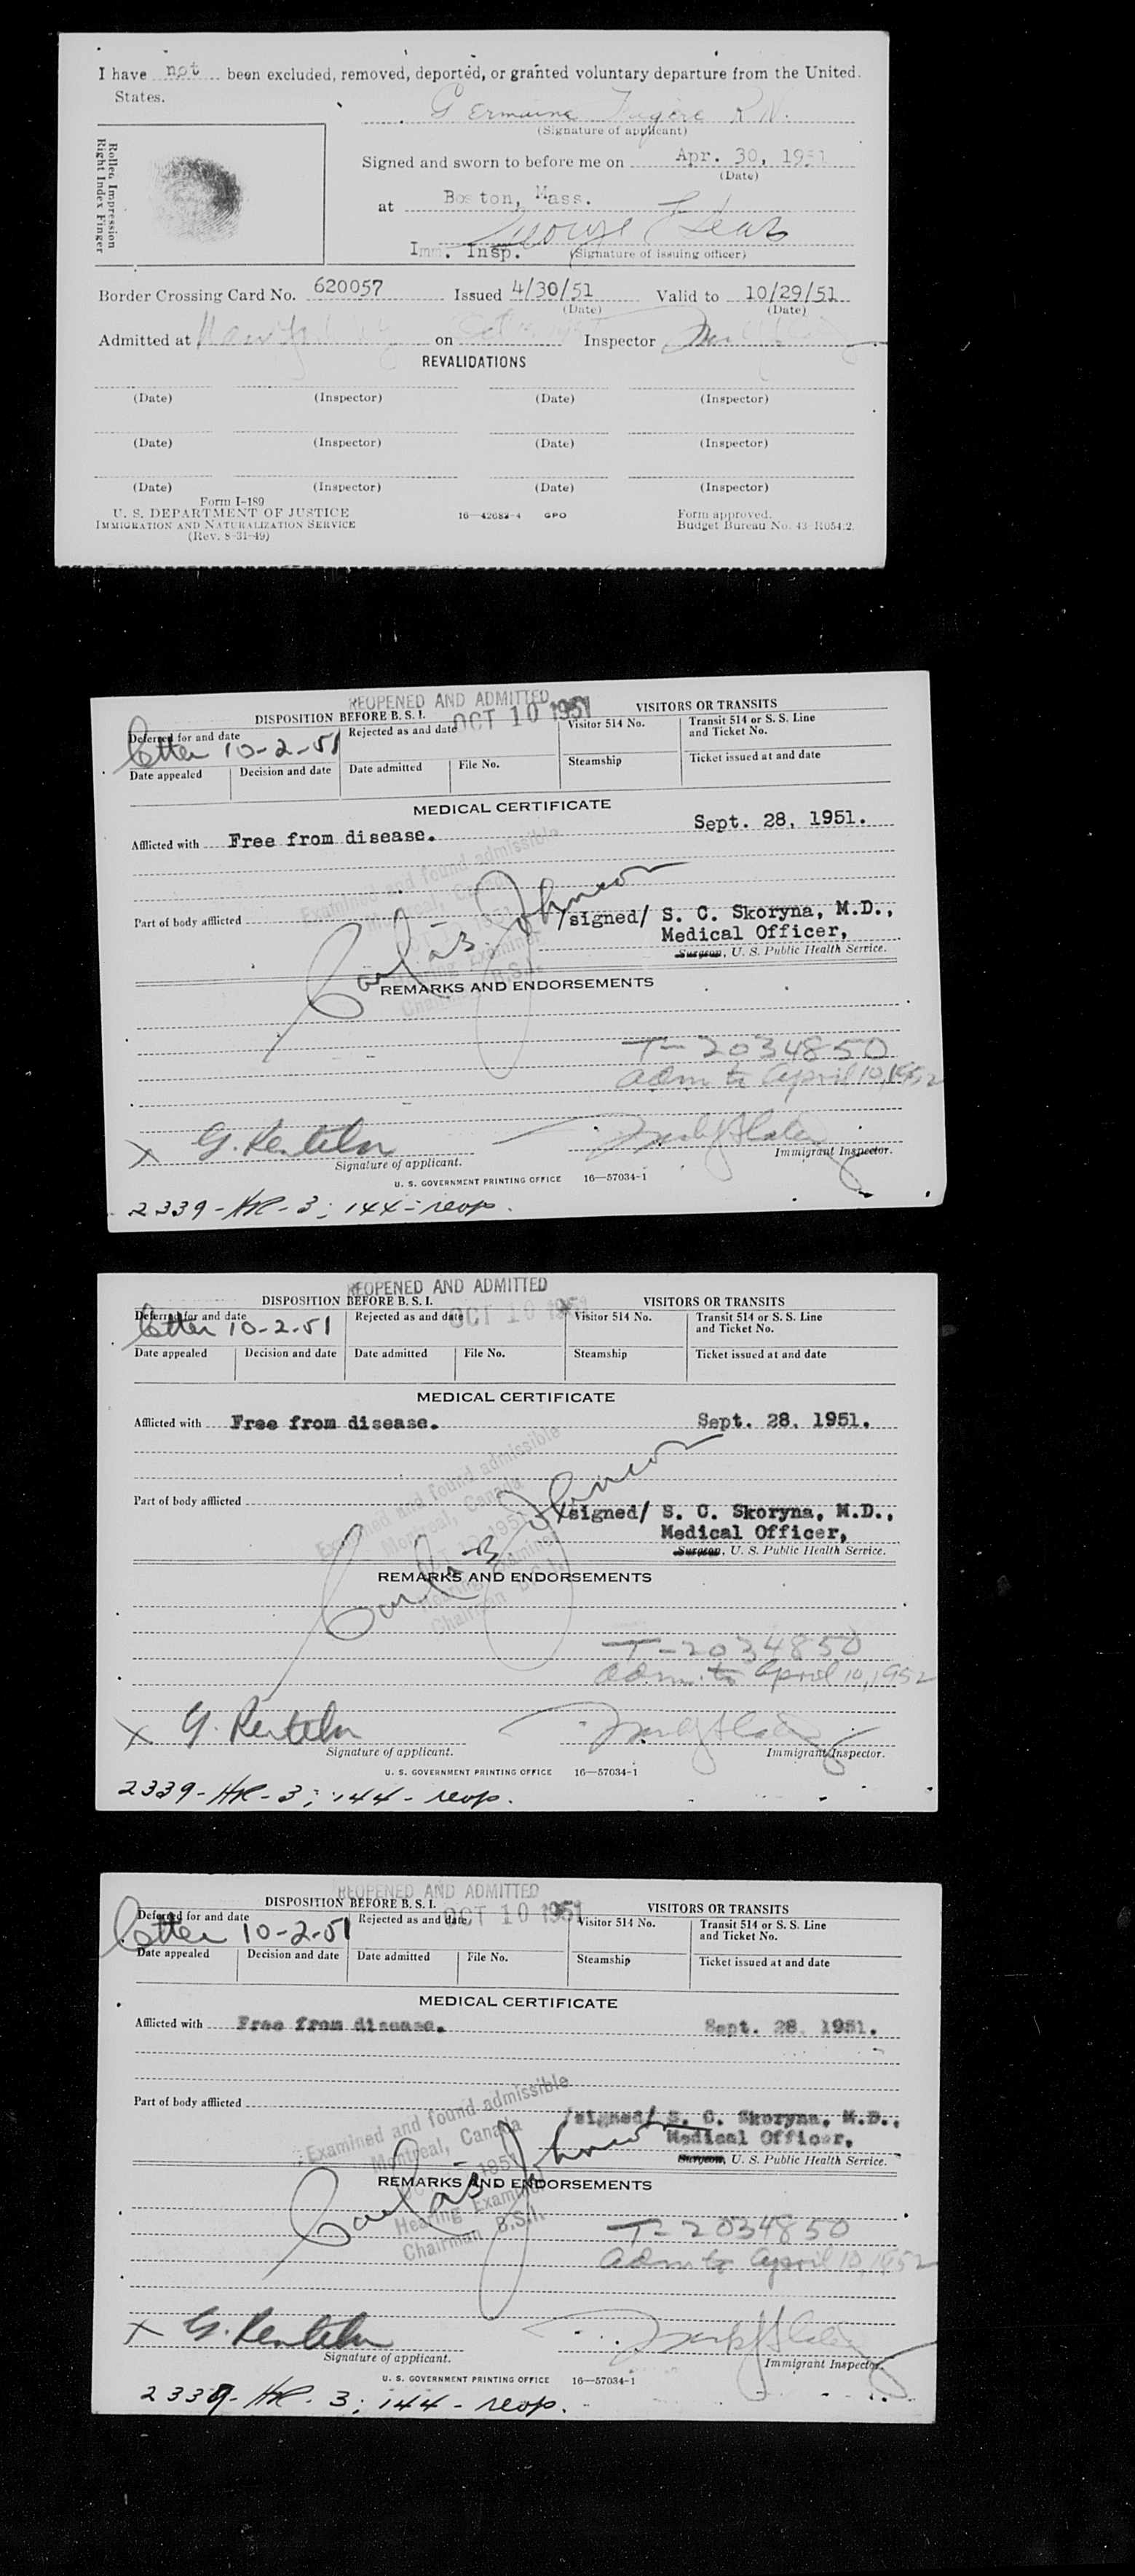 I have not been excluded, removed, deported, or granted voluntary departure from the United
States.
Germaine R.N.
(Signature of applicant)
Rolled Impression
Right Index Finger
Signed and sworn to before me on Apr. 30, 1951
(Date)
at Boston, Mass.
Imm. Insp. (Signature of issuing officer)
Border Crossing Card No. 620057 Issued 4/30/51 Valid to 10/29/51
(Date) (Date)
Admitted at on Inspector
REVALIDATIONS
(Date) (Inspector) (Date) (Inspector)
(Date) (Inspector) (Date) (Inspector)
(Date) (Inspector) (Date) (Inspector)
Form I-189
U. S. DEPARTMENT OF JUSTICE
IMMIGRATION AND NATURALIZATION SERVICE
(Rev. 8-31-49)
16—42682-4 GPO
Form approved.
Budget Bureau No. 43-R054.2.
REOPENED AND ADMITTED
DISPOSITION BEFORE B. S. I. OCT 10 1951 VISITORS OR TRANSITS
Deferred for and date Rejected as and date Visitor 514 No. Transit 514 or S. S. Line
and Ticket No.
letter 10-2-51
Date appealed Decision and date Date admitted File No. Steamship Ticket issued at and date
MEDICAL CERTIFICATE
Afflicted with Free from disease. Sept. 28, 1951.
Examined and found admissible
Part of body afflicted
/signed/ S. C. Skoryna, M.D.,
Medical Officer,
Surgeon, U. S. Public Health Service.
REMARKS AND ENDORSEMENTS
T-2034850
adm to April 10, 1952
X G.
Signature of applicant. Immigrant Inspector.
U. S. GOVERNMENT PRINTING OFFICE 16—57034-1
2339-HR-3; 144-reop.
REOPENED AND ADMITTED
DISPOSITION BEFORE B. S. I. OCT 10 1951 VISITORS OR TRANSITS
Deferred for and date Rejected as and date Visitor 514 No. Transit 514 or S. S. Line
and Ticket No.
letter 10-2-51
Date appealed Decision and date Date admitted File No. Steamship Ticket issued at and date
MEDICAL CERTIFICATE
Afflicted with Free from disease. Sept. 28, 1951.
Examined and found admissible
Montreal, Canada
Part of body afflicted
/signed/ S. C. Skoryna, M.D.,
Medical Officer,
Surgeon, U. S. Public Health Service.
REMARKS AND ENDORSEMENTS
T-2034850
adm. to April 10, 1952
X G.
Signature of applicant. Immigrant Inspector.
U. S. GOVERNMENT PRINTING OFFICE 16—57034-1
2339-HR-3; 144-reop.
REOPENED AND ADMITTED
DISPOSITION BEFORE B. S. I. OCT 10 1951 VISITORS OR TRANSITS
Deferred for and date Rejected as and date Visitor 514 No. Transit 514 or S. S. Line
and Ticket No.
letter 10-2-51
Date appealed Decision and date Date admitted File No. Steamship Ticket issued at and date
MEDICAL CERTIFICATE
Afflicted with Free from disease. Sept. 28, 1951.
Part of body afflicted
Examined and found admissible
Montreal, Canada
1951
Hearing Examiner
Chairman B.S.I.
/signed/ S. C. Skoryna, M.D.,
Medical Officer,
Surgeon, U. S. Public Health Service.
REMARKS AND ENDORSEMENTS
T-2034850
adm to April 10, 1952
X G.
Signature of applicant. Immigrant Inspector.
U. S. GOVERNMENT PRINTING OFFICE 16—57034-1
2339-HR-3; 144-reop.